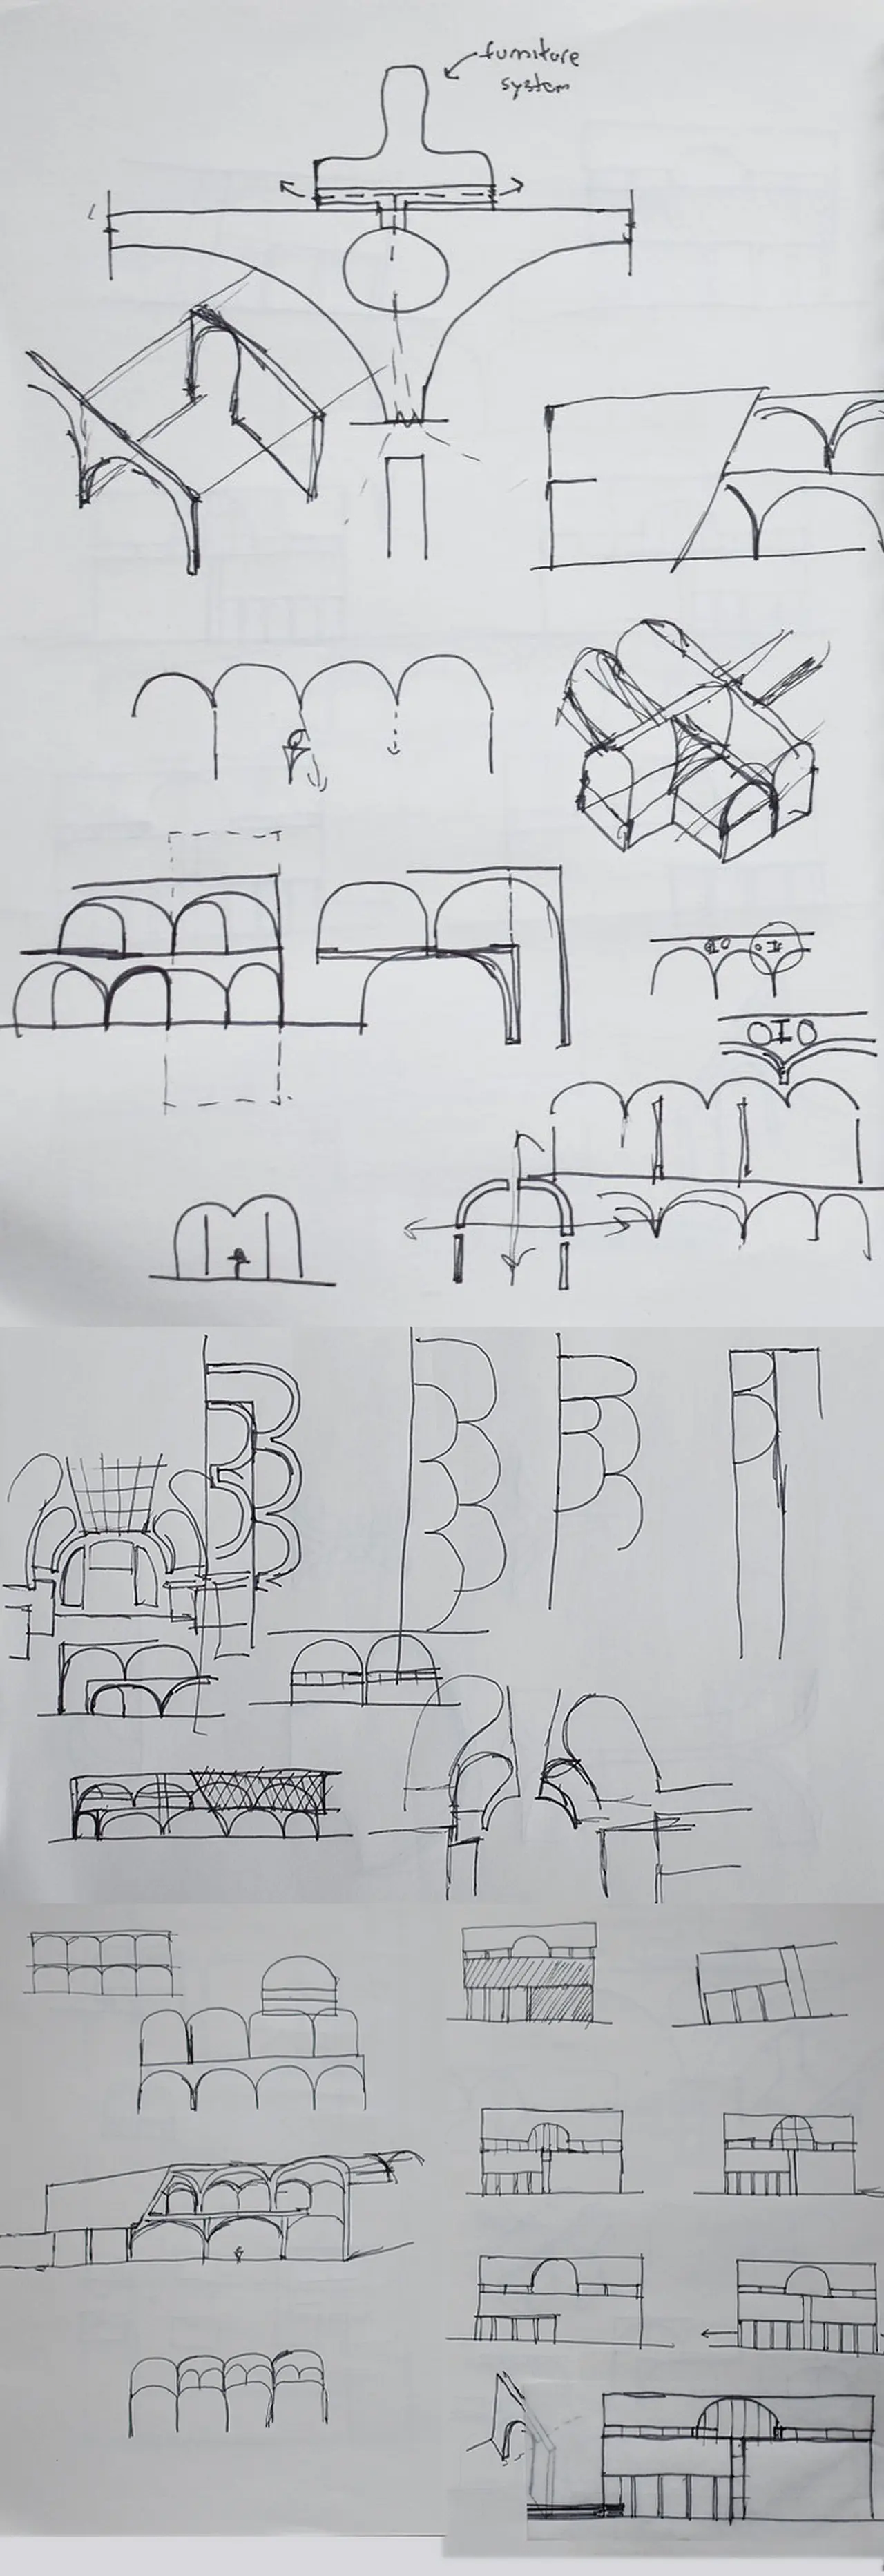 furniture
system